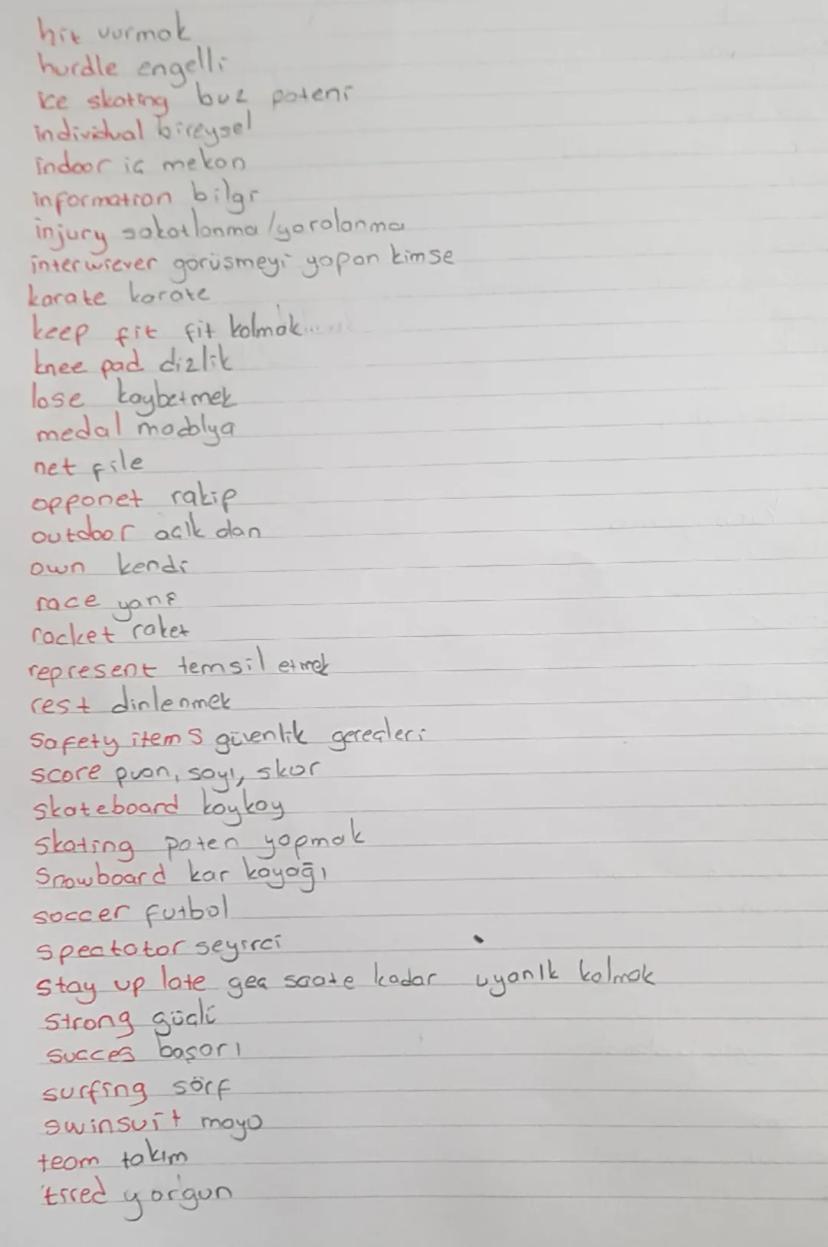 hit vurmak
hurdle engelli
ice skating buz pateni
individual bireysel
indoor iç mekan
information bilgi
injury sakatlanma/yaralanma
interwiever görüşmeyi yapan kimse
karate karate
keep fit fit kalmak....
knee pad dizlik
lose kaybetmek
medal madalya
net file
opponet rakip
outdoor acık alan
own kendi
race yarış
racket raket
represent temsil etmek
rest dinlenmek
safety items güvenlik gereçleri
score puan, sayı, skor
skateboard kaykay
skating paten yapmak
snowboard kar kayağı
soccer futbol
spectator seyirci
stay up late geç saate kadar uyanık kalmak
strong güçlü
succes başarı
surfing sörf
swinsuit mayo
team takım
tired yorgun